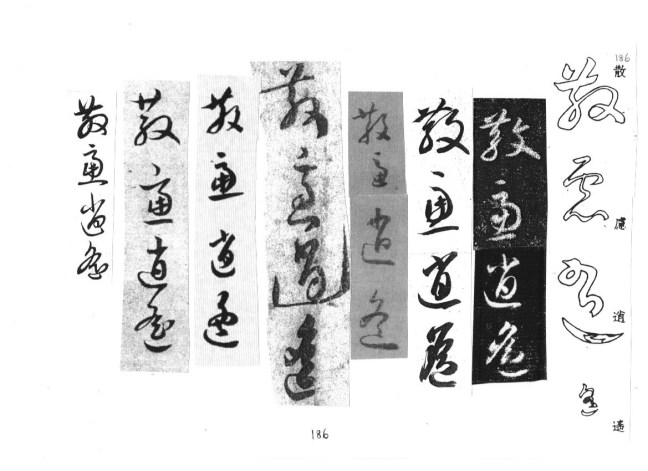 186
散 慮 逍 遙
散慮逍遙
散慮逍遙
散慮逍遙
散慮逍遙
散慮逍遙
散慮逍遙
散慮逍遙
散慮逍遙
186